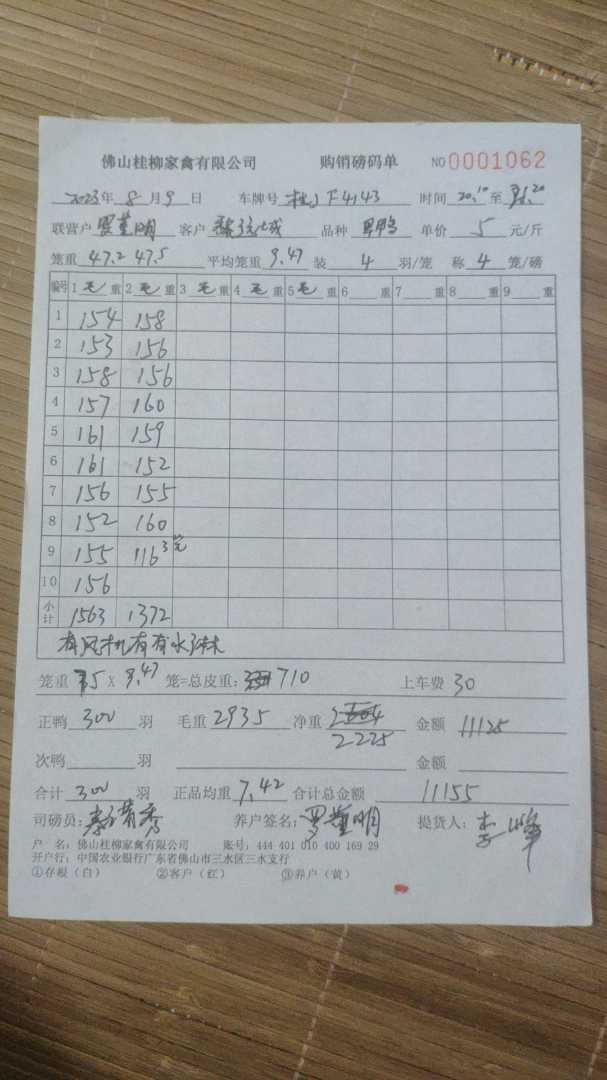 佛山桂柳家禽有限公司 购销磅码单 NO 0001062
2023年 8 月 9 日 车牌号 桂J F4143 时间 20:10 至
联营户 罗董明 客户 品种 单价 5 元/斤
笼重 47.2 47.5 平均笼重 9.47 装 4 羽/笼 称 4 笼/磅
编号 1 毛 重 2 毛 重 3 毛 重 4 毛 重 5 毛 重 6 重 7 重 8 重 9 重
1 154 158
2 153 156
3 158 156
4 157 160
5 161 159
6 161 152
7 156 155
8 152 160
9 155 116 3笼
10 156
小计 1563 1372
有风机有有水淋
笼重 75 X 9.47 笼=总皮重: 710 上车费 30
正鸭 300 羽 毛重 2935 净重 2225 金额 11125
次鸭 羽 金额
合计 300 羽 正品均重 7.42 合计总金额 11155
司磅员: 养户签名: 罗董明 提货人: 李峰
户 名: 佛山桂柳家禽有限公司 账号: 444 401 010 400 169 29
开户行: 中国农业银行广东省佛山市三水区三水支行
①存根（白） ②客户（红） ③养户（黄）